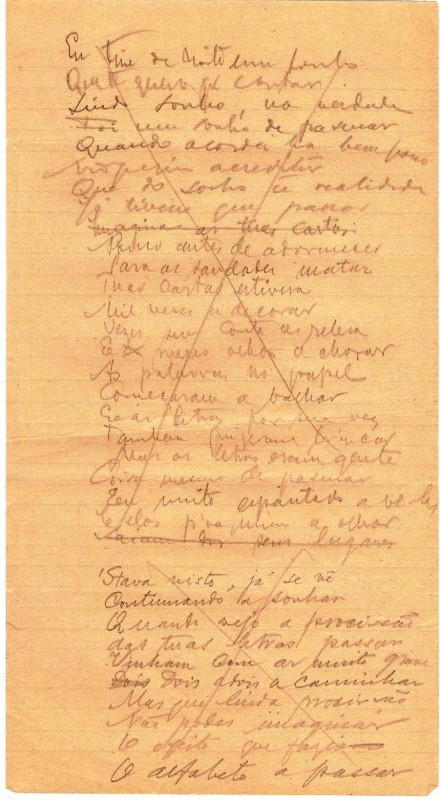 Eu tive de noite um sonho
Que te quero já contar
Lindo sonho, na verdade
Foi um sonho de pasmar
Quando acordei há bem pouco
acreditar
Que do sonho à realidade
já tivera que passar
Imagina as tuas cartas
antes de adormecer
Para as saudades matar
Tuas cartas estivera
Mil vezes a decorar
Vezes sem conta as relera
E meus olhos a chorar
As palavras no papel
Começaram a bailar
E as letras por sua vez
Também quizeram brincar
Mas as letras eram gente
Coisa mesmo de pasmar
Eu muito espantado a vê-las
e elas para mim a olhar
Saíam dos seus lugares
'Stava visto, já se vê
Continuando a sonhar
Quando vejo a procissão
das tuas letras passar
Vinham com ar muito grave
Dois Dois a dois a caminhar
Mas que linda procissão
Não podes imaginar
O efeito que fazia
O alfabeto a passar